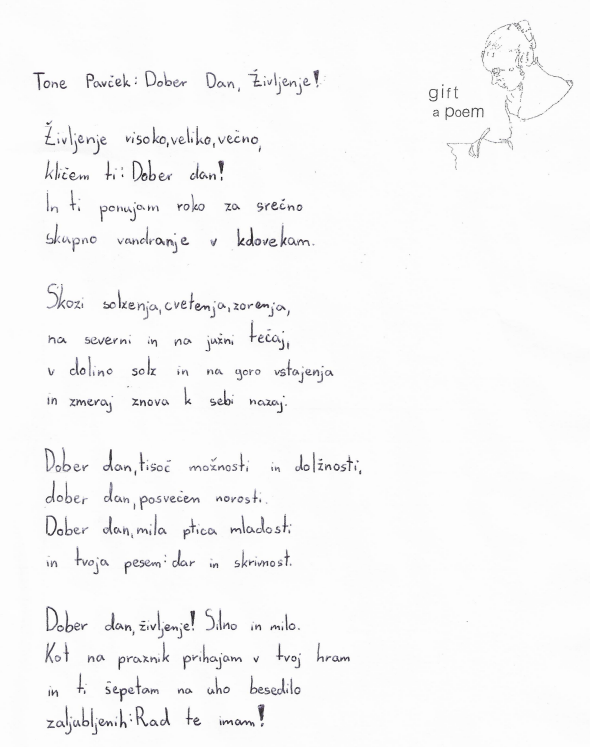 Tone Pavček: Dober Dan, Življenje!
gift
a poem
Življenje visoko, veliko, večno,
kličem ti: Dober dan!
In ti ponujam roko za srečno
skupno vandranje v kdovekam.
Skozi solzenja, cvetenja, zorenja,
na severni in na južni tečaj,
v dolino solz in na goro vstajenja
in zmeraj znova k sebi nazaj.
Dober dan, tisoč možnosti in dolžnosti,
dober dan, posvečen norosti.
Dober dan, mila ptica mladosti
in tvoja pesem: dar in skrivnost.
Dober dan, življenje! Silno in milo.
Kot na praznik prihajam v tvoj hram
in ti šepetam na uho besedilo
zaljubljenih: Rad te imam!